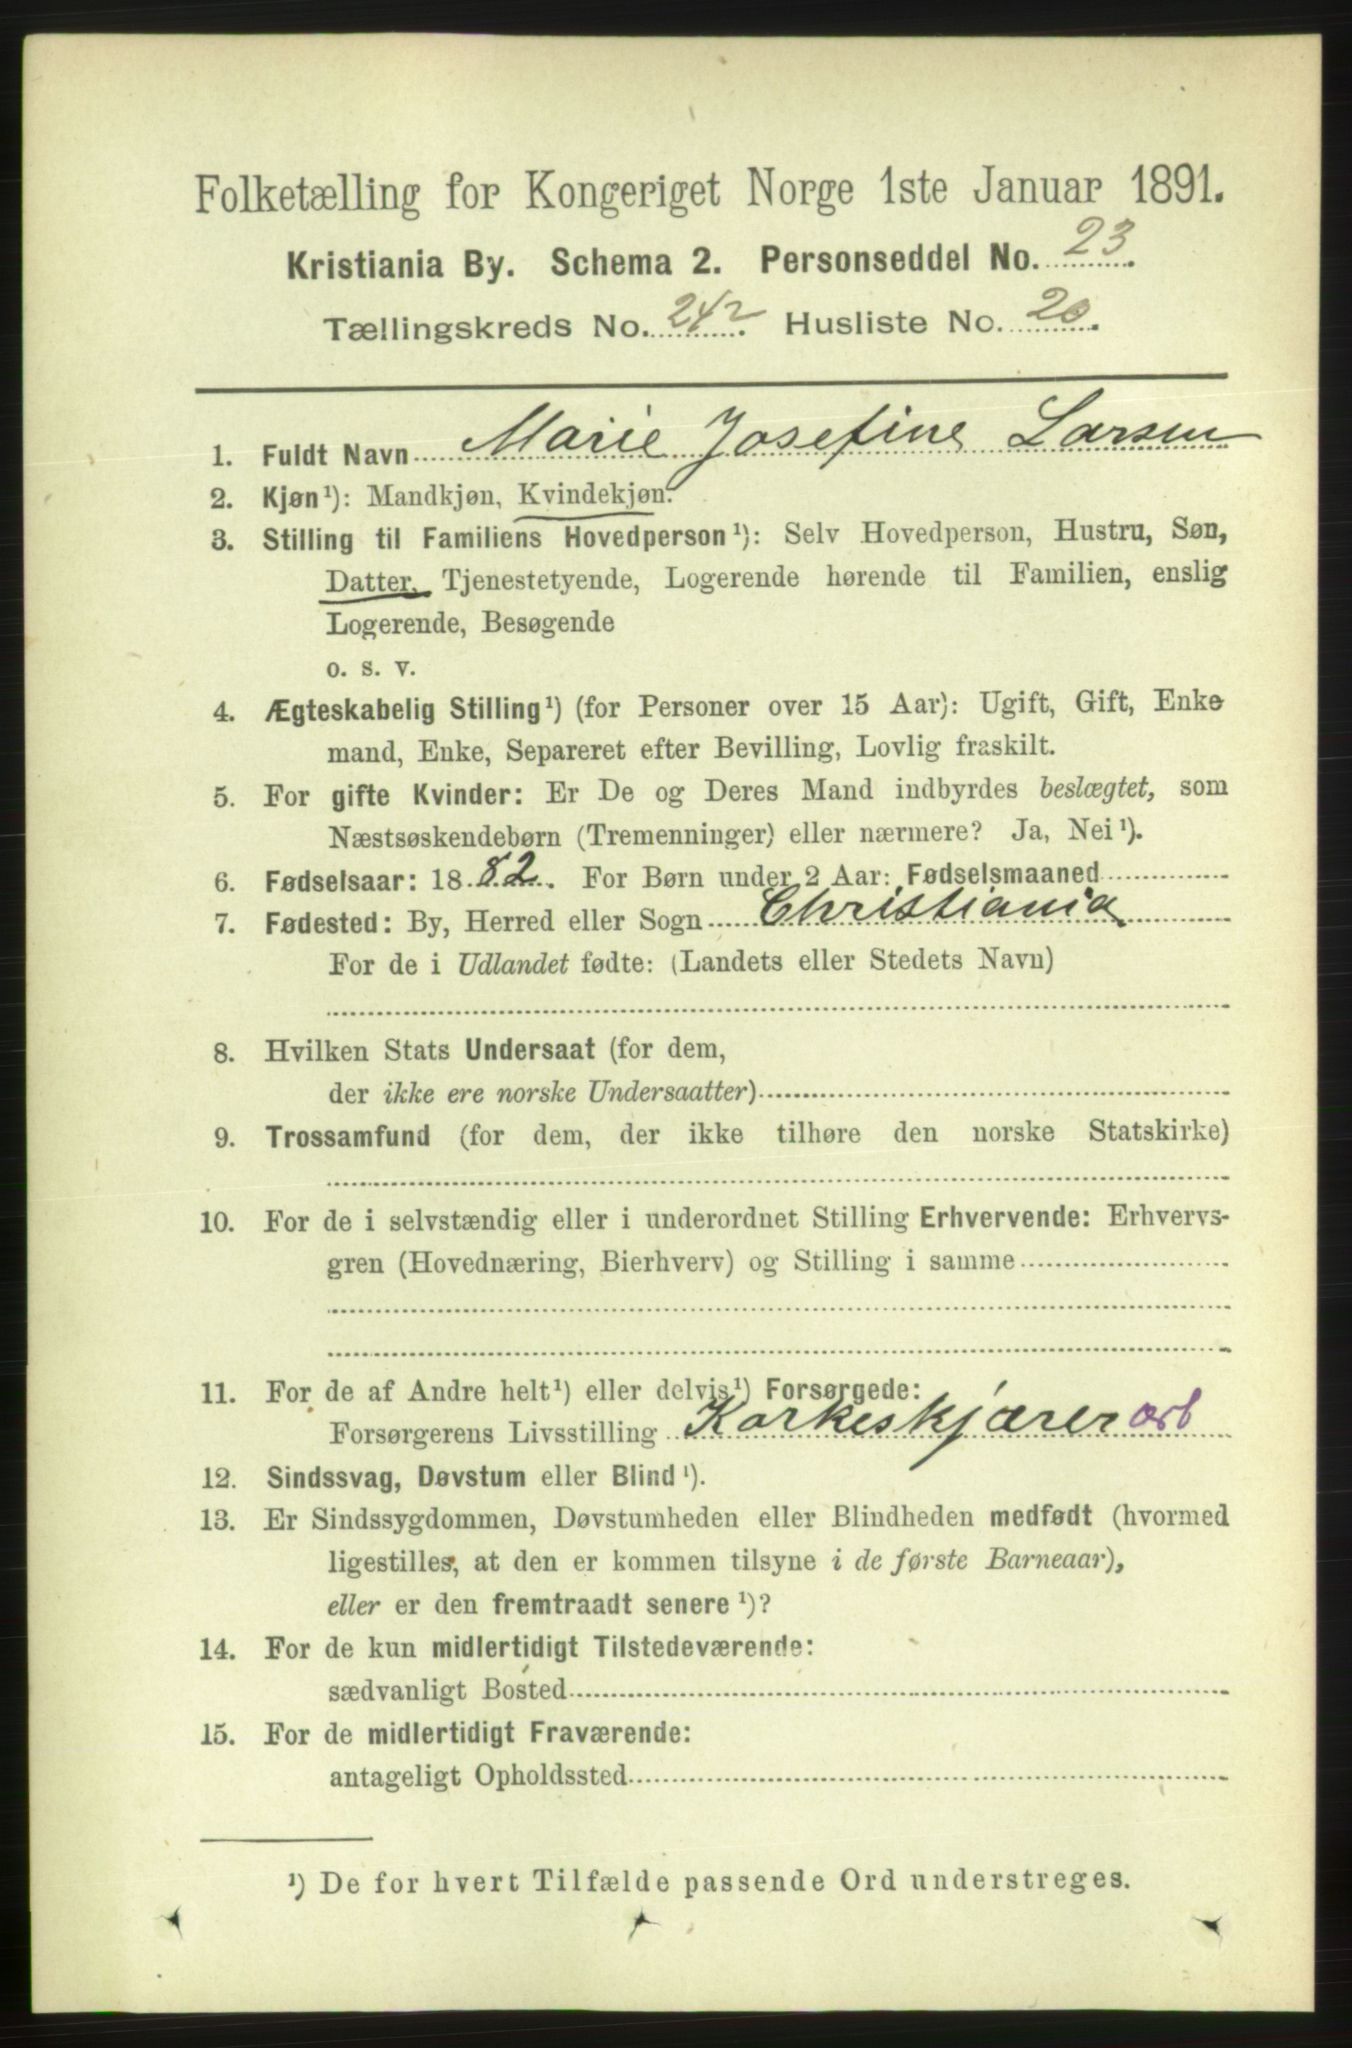 Folketælling for Kongeriget Norge 1ste Januar 1891.
Kristiania By. Schema 2. Personseddel No. 23.
Tællingskreds No. 242. Husliste No. 20.
1. Fuldt Navn Marie Josefine Larsen
2. Kjøn¹): Mandkjøn, Kvindekjøn.
3. Stilling til Familiens Hovedperson¹): Selv Hovedperson, Hustru, Søn,
Datter, Tjenestetyende, Logerende hørende til Familien, enslig
Logerende, Besøgende
o. s. v.
4. Ægteskabelig Stilling¹) (for Personer over 15 Aar): Ugift, Gift, Enke
mand, Enke, Separeret efter Bevilling, Lovlig fraskilt.
5. For gifte Kvinder: Er De og Deres Mand indbyrdes beslægtet, som
Næstsøskendebørn (Tremenninger) eller nærmere? Ja, Nei¹).
6. Fødselsaar: 1882. For Børn under 2 Aar: Fødselsmaaned
7. Fødested: By, Herred eller Sogn Christiania
For de i Udlandet fødte: (Landets eller Stedets Navn)
8. Hvilken Stats Undersaat (for dem,
der ikke ere norske Undersaatter)
9. Trossamfund (for dem, der ikke tilhøre den norske Statskirke)
10. For de i selvstændig eller i underordnet Stilling Erhvervende: Erhvervs-
gren (Hovednæring, Bierhverv) og Stilling i samme
11. For de af Andre helt¹) eller delvis¹) Forsørgede:
Forsørgerens Livsstilling Korkeskjærer arb
12. Sindssvag, Døvstum eller Blind¹).
13. Er Sindssygdommen, Døvstumheden eller Blindheden medfødt (hvormed
ligestilles, at den er kommen tilsyne i de første Barneaar),
eller er den fremtraadt senere¹)?
14. For de kun midlertidigt Tilstedeværende:
sædvanligt Bosted
15. For de midlertidigt Fraværende:
antageligt Opholdssted
¹) De for hvert Tilfælde passende Ord understreges.